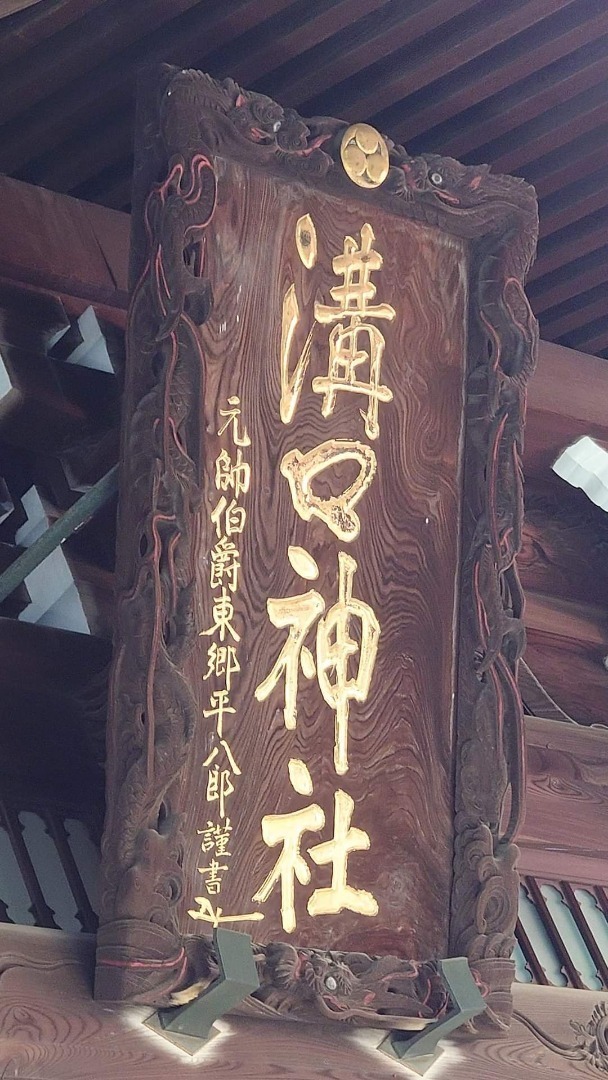 溝口神社
元帥伯爵東郷平八郎謹書